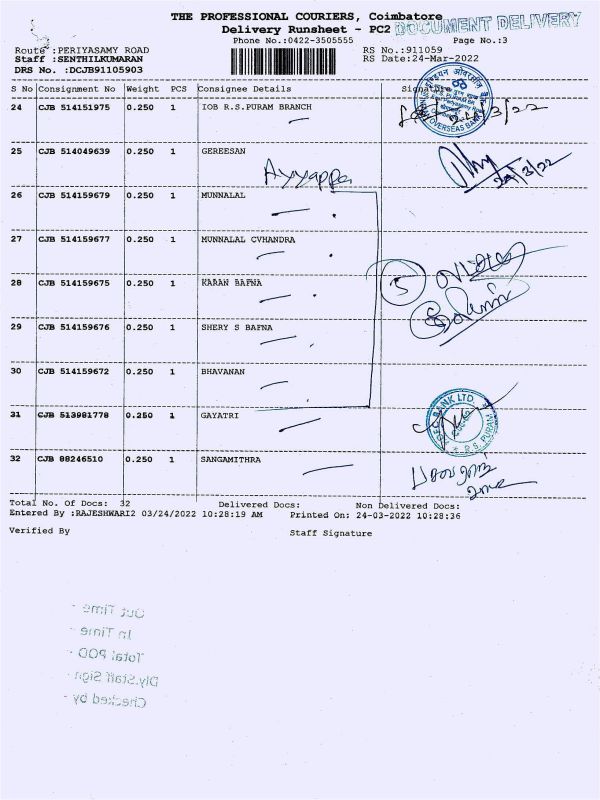 THE PROFESSIONAL COURIERS, Coimbatore
Delivery Runsheet - PC2 DOCUMENT DELIVERY
Phone No.:0422-3505555 Page No.:3
Route :PERIYASAMY ROAD RS No.:911059
Staff :SENTHILKUMARAN RS Date:24-Mar-2022
DRS No. :DCJB91105903
S No Consignment No Weight PCS Consignee Details Signature
24 CJB 514151975 0.250 1 IOB R.S.PURAM BRANCH
25 CJB 514049639 0.250 1 GEREESAN
Ayyappa
24/3/22
26 CJB 514159679 0.250 1 MUNNALAL
27 CJB 514159677 0.250 1 MUNNALAL CVHANDRA
5
28 CJB 514159675 0.250 1 KARAN BAFNA
29 CJB 514159676 0.250 1 SHERY S BAFNA
30 CJB 514159672 0.250 1 BHAVANAN
31 CJB 513981778 0.250 1 GAYATRI
BANK LTD.
R.S. PURAM
32 CJB 88246510 0.250 1 SANGAMITHRA
Total No. Of Docs: 32 Delivered Docs: Non Delivered Docs:
Entered By :RAJESHWARI2 03/24/2022 10:28:19 AM Printed On: 24-03-2022 10:28:36
Verified By Staff Signature
Out Time -
In Time -
Total POD -
Dly.Staff Sign -
Checked by -